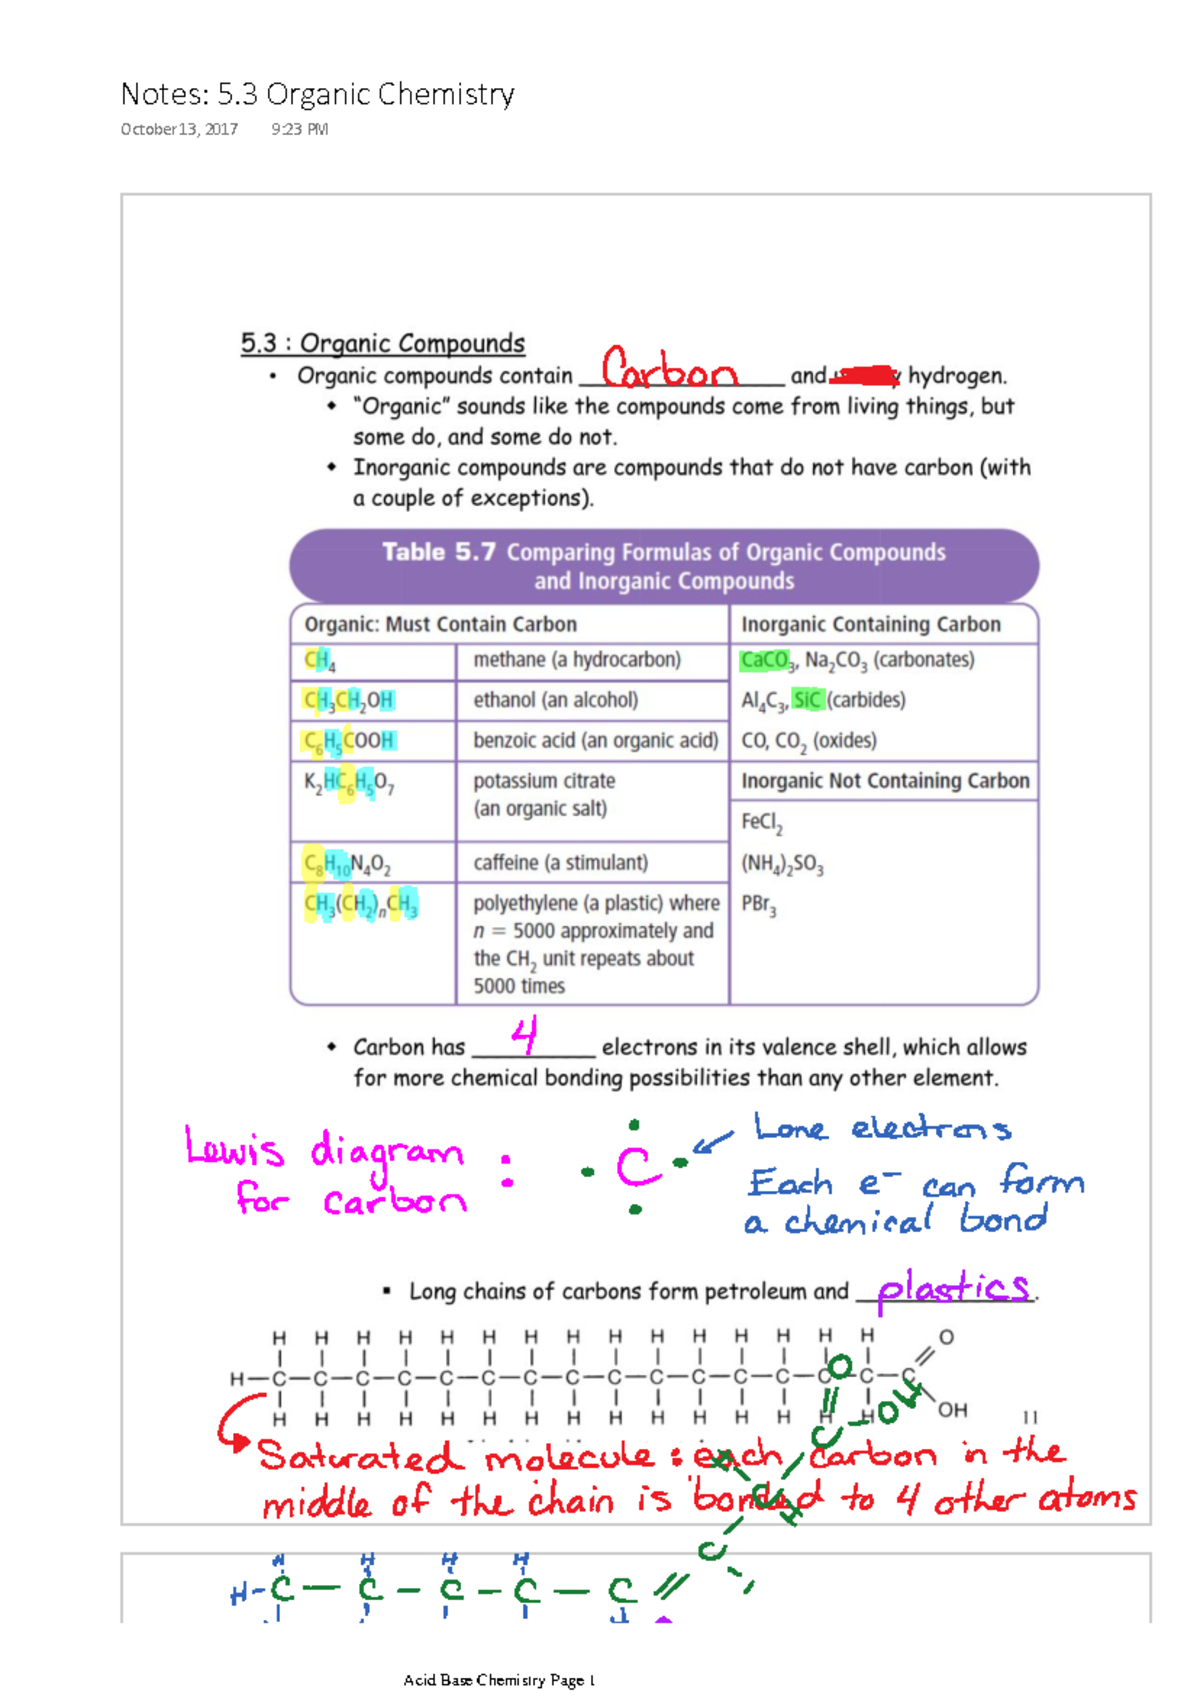 Notes: 5.3 Organic Chemistry
October 13, 2017 9:23 PM
5.3 : Organic Compounds
• Organic compounds contain Carbon and hydrogen.
◆ "Organic" sounds like the compounds come from living things, but
some do, and some do not.
◆ Inorganic compounds are compounds that do not have carbon (with
a couple of exceptions).
Table 5.7 Comparing Formulas of Organic Compounds
and Inorganic Compounds
Organic: Must Contain Carbon Inorganic Containing Carbon
CH₄ methane (a hydrocarbon) CaCO₃, Na₂CO₃ (carbonates)
CH₃CH₂OH ethanol (an alcohol) Al₄C₃, SiC (carbides)
C₆H₅COOH benzoic acid (an organic acid) CO, CO₂ (oxides)
K₂HC₆H₅O₇ potassium citrate Inorganic Not Containing Carbon
(an organic salt)
FeCl₂
C₈H₁₀N₄O₂ caffeine (a stimulant) (NH₄)₂SO₃
CH₃(CH₂)ₙCH₃ polyethylene (a plastic) where PBr₃
n = 5000 approximately and
the CH₂ unit repeats about
5000 times
◆ Carbon has 4 electrons in its valence shell, which allows
for more chemical bonding possibilities than any other element.
Lewis diagram : C Lone electrons
for carbon Each e⁻ can form
a chemical bond
▪ Long chains of carbons form petroleum and plastics.
H H H H H H H H H H H H H H H O
H—C—C—C—C—C—C—C—C—C—C—C—C—C—C—C—C O
H H H H H H H H H H H H H H H OH OH 11
C
Saturated molecule : each carbon in the
middle of the chain is bonded to 4 other atoms
C H
C
H H H H
H-C — C — C — C — C // 
Acid Base Chemistry Page 1